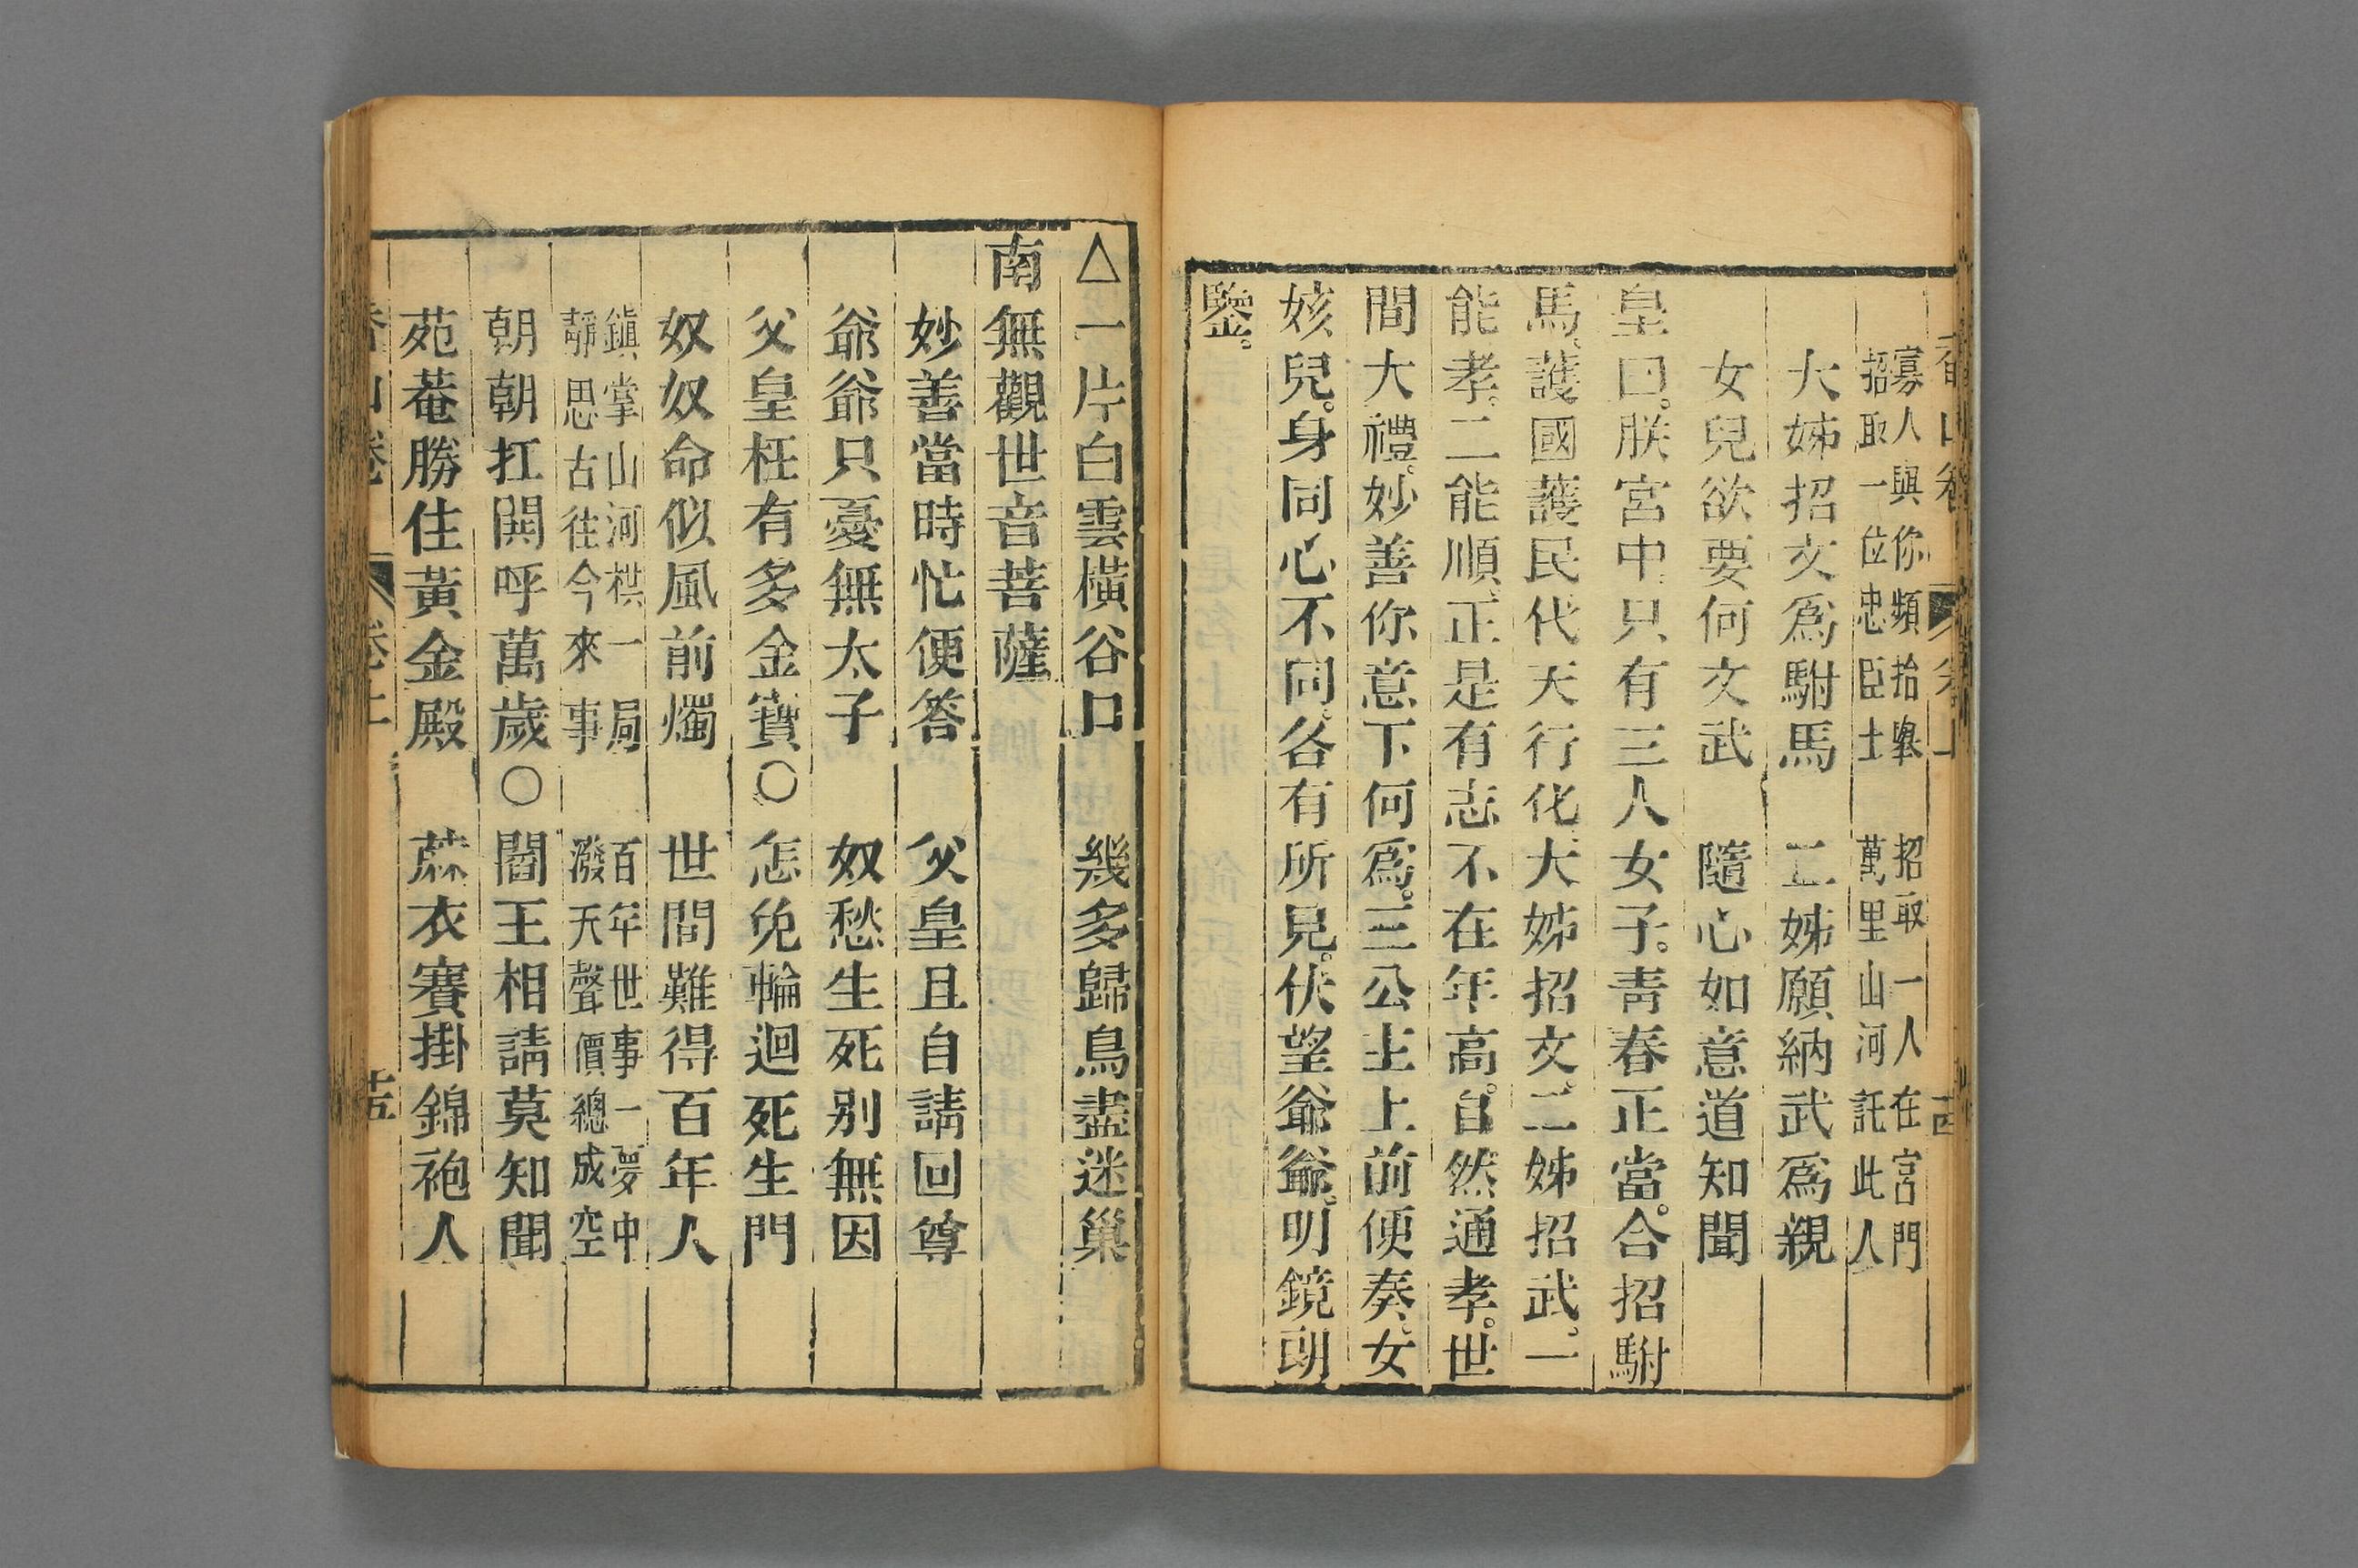 香山卷 卷上 十四
寡人與你頻拾舉 招取一人在宮門
招取一位忠臣士 萬里山河託此人
大姊招文爲駙馬 二姊願納武爲親
女兒欲要何文武 隨心如意道知聞
皇曰。朕宮中只有三人女子。靑春正當。合招駙
馬。護國護民、代天行化、大姊招文、二姊招武。一
能孝。二能順、正是有志不在年高。自然通孝。世
間大禮。妙善你意下何爲。三公主上前便奏、女
姟兒。身同心不同。各有所見。伏望爺爺。明鏡朗
鑒。
△一片白雲橫谷口 幾多歸鳥盡迷巢
南無觀世音菩薩
妙善當時忙便答 父皇且自請回尊
爺爺只憂無太子 奴愁生死别無因
父皇枉有多金寶〇怎免輪迴死生門
奴奴命似風前燭 世間難得百年人
鎭掌山河棋一局 百年世事一夢中
靜思古往今來事 潑天聲價總成空
朝朝扛閧呼萬歲〇閻王相請莫知聞
苑菴勝住黃金殿 蔴衣賽掛錦袍人
香山卷 卷上 十五